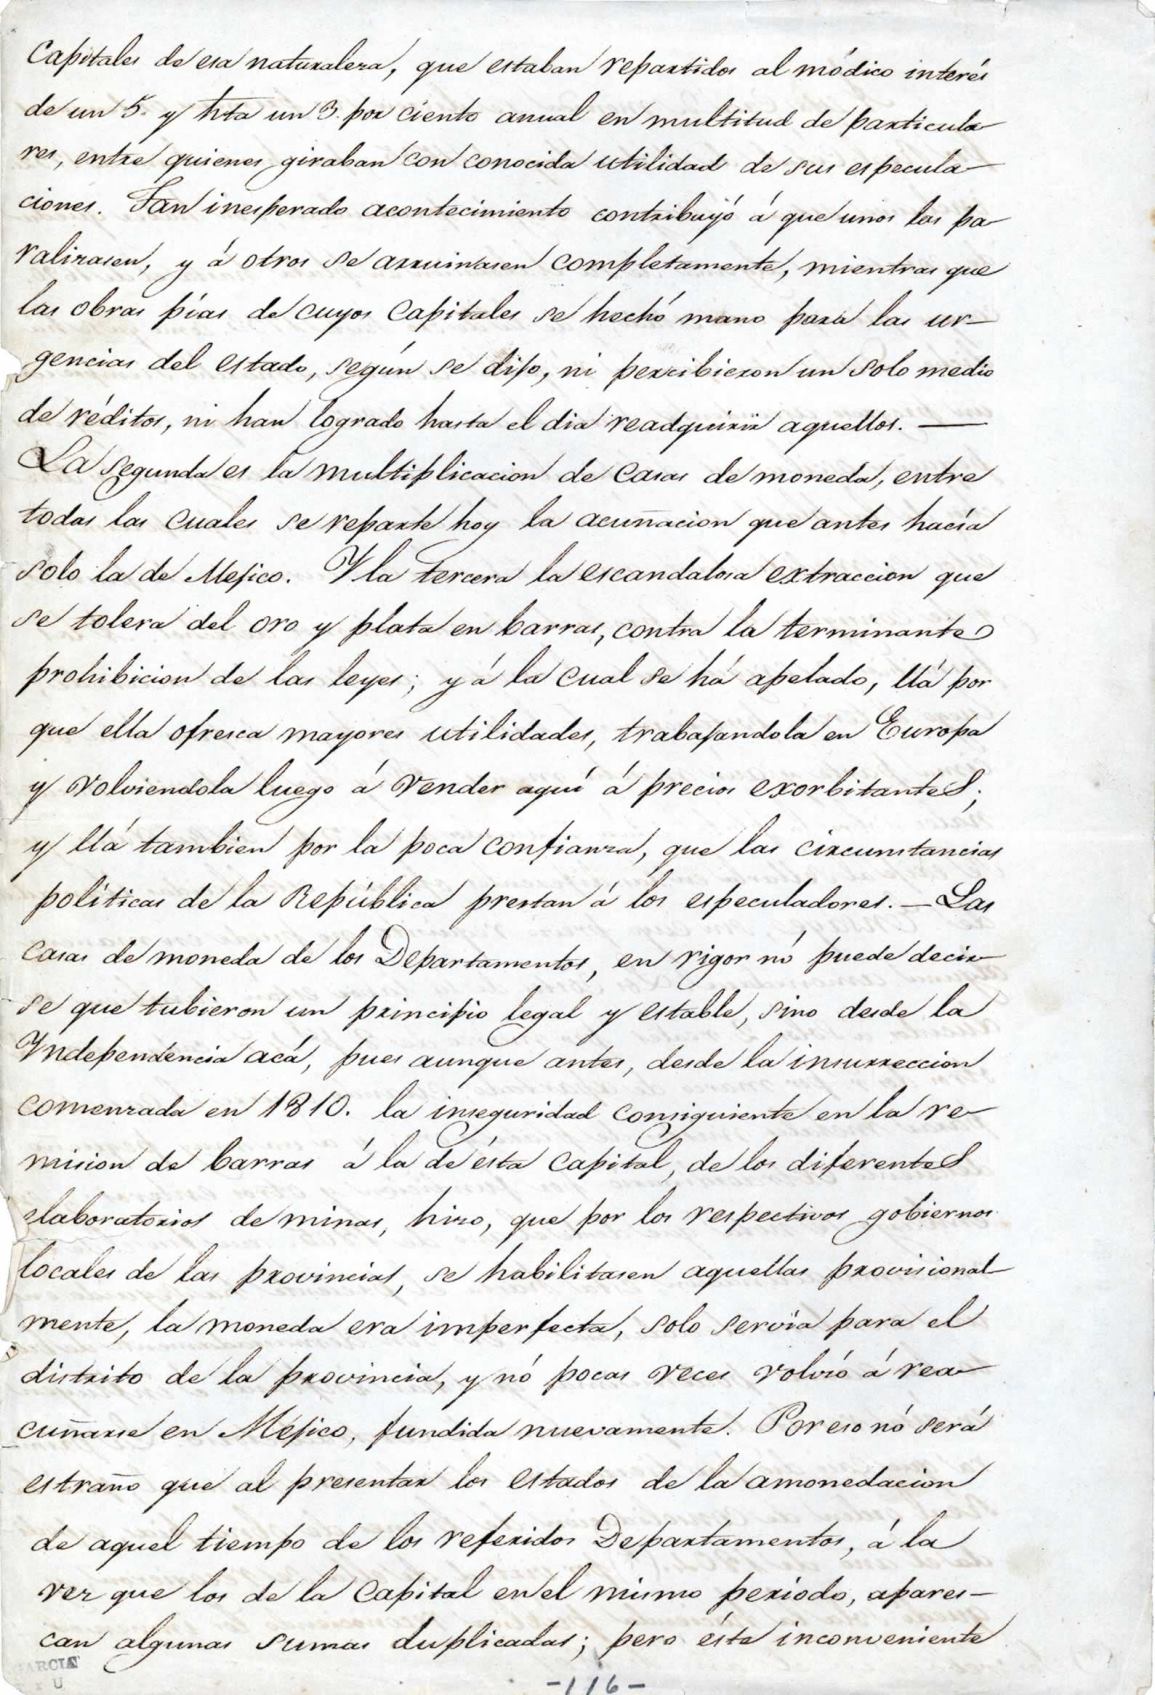 Capitales de esa naturaleza, que estaban repartidos al módico interés
de un 5. y hta un 3. por ciento anual en multitud de particula
res, entre quienes giraban con conocida utilidad de sus especula
ciones. Tan inesperado acontecimiento contribuyó á que unos los pa
ralizasen, y á otros se arruinasen completamente, mientras que
las obras pías de cuyos Capitales se hechó mano para las ur-
gencias del estado, según se dijo, ni percibieron un solo medio
de réditos, ni han logrado hasta el dia readquirir aquellos. —
La segunda es la multiplicacion de casas de moneda, entre
todas las cuales se reparte hoy la acuñacion que antes hacía
solo la de Mejico. Y la tercera la escandalosa extraccion que
se tolera del oro y plata en barras, contra la terminante
prohibicion de las leyes; y á la cual se há apelado, llá por
que ella ofresca mayores utilidades, trabajandola en Europa
y volviendola luego á vender aquí á precios exorbitantes;
y llá tambien por la poca confianza, que las circunstancias
políticas de la República prestan á los especuladores. — Las
casas de moneda de los Departamentos, en rigor nó puede decir
se que tubieron un principio legal y estable, sino desde la
Yndependencia acá, pues aunque antes, desde la insurreccion
comenzada en 1810. la inseguridad consiguiente en la re-
mision de barras á la de ésta Capital, de los diferentes
elaboratorios de minas, hizo, que por los respectivos gobiernos
locales de las provincias, se habilitasen aquellas provisional
mente, la moneda era imperfecta, solo servía para el
distrito de la provincia, y nó pocas veces volvió á rea
cuñarse en Méjico, fundida nuevamente. Por eso nó será
estraño que al presentar los estados de la amonedacion
de aquel tiempo de los referidos Departamentos, á la
vez que los de la Capital en el mismo periodo, apares-
can algunas sumas duplicadas; pero éste inconveniente
GARCIA
U
-116-